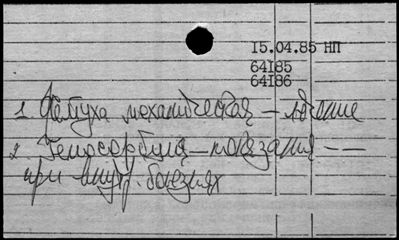 15.04.85 НП
64185
64186
1. Желтуха механическая – лечение
2. Гемосорбция – показания – –
при внутр. болезнях